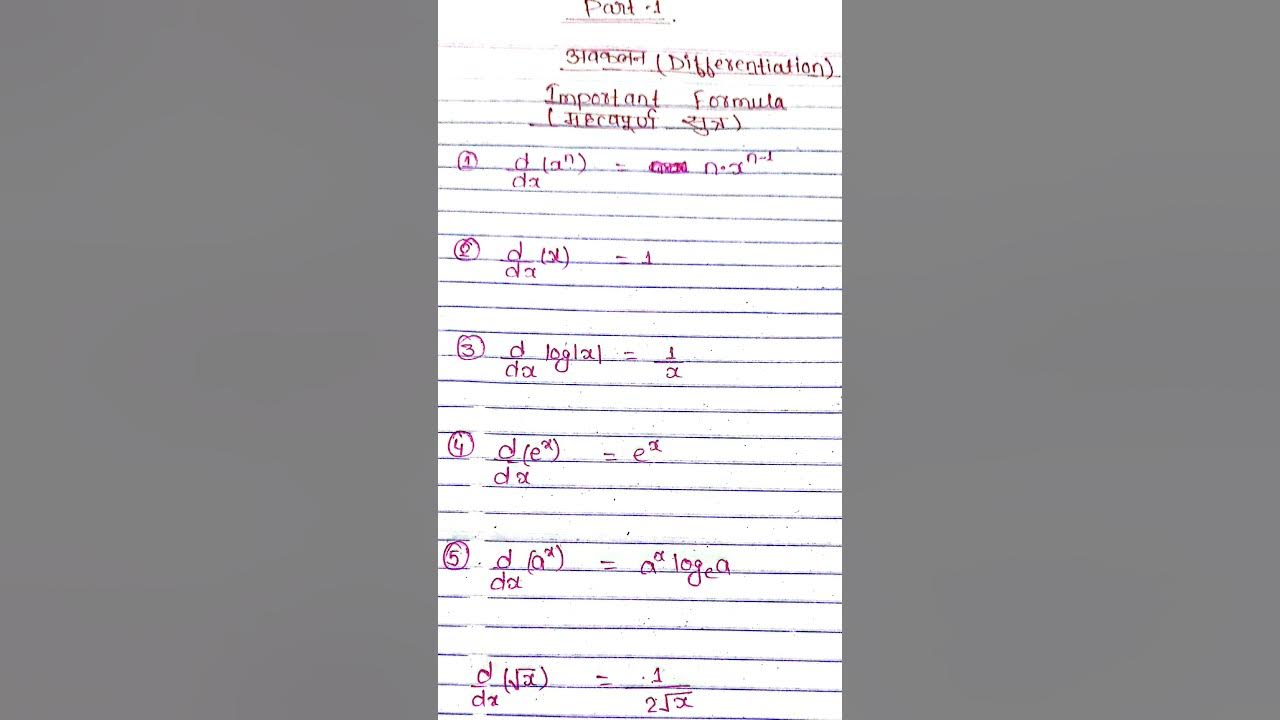 Part.1
अवकलन (Differentiation)
Important Formula
(महत्वपूर्ण सुत्र)
① d/dx (xⁿ) = n·xⁿ⁻¹
② d/dx (x) = 1
③ d/dx log|x| = 1/x
④ d/dx (eˣ) = eˣ
⑤ d/dx (aˣ) = aˣ logₑa
d/dx (√x) = 1/2√x